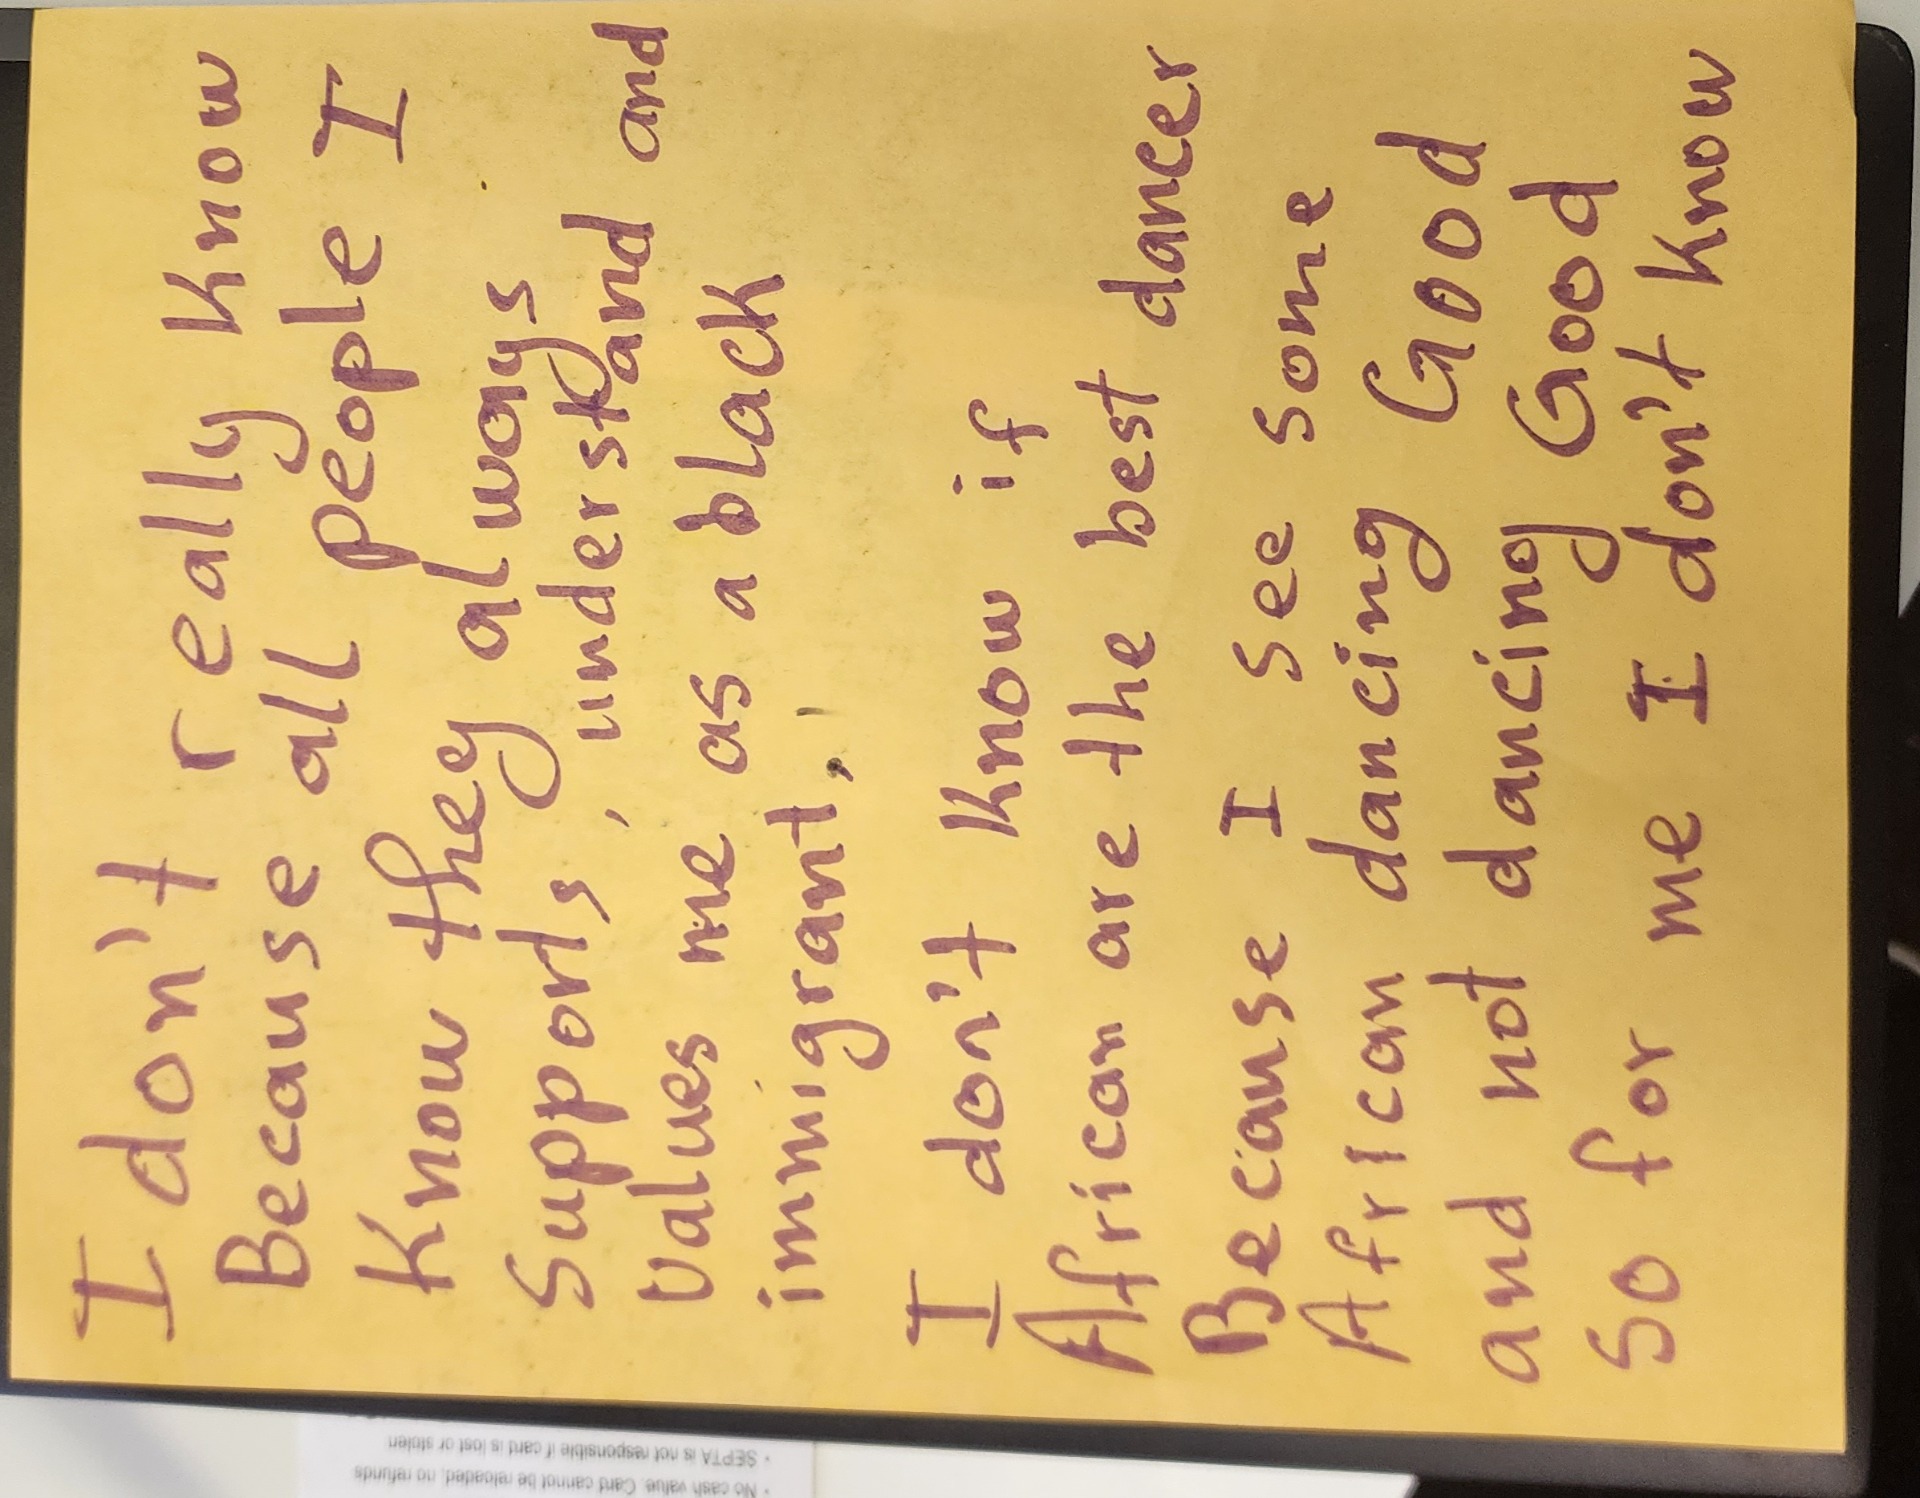 I don't really know
Because all people I
Know they always
Supports, understand and
values me as a black
immigrant,
I don't know if
African are the best dancer
Because I see some
African dancing Good
and not dancing Good
So for me I don't know
• No cash value. Card cannot be reloaded, no refunds
• SEPTA is not responsible if card is lost or stolen